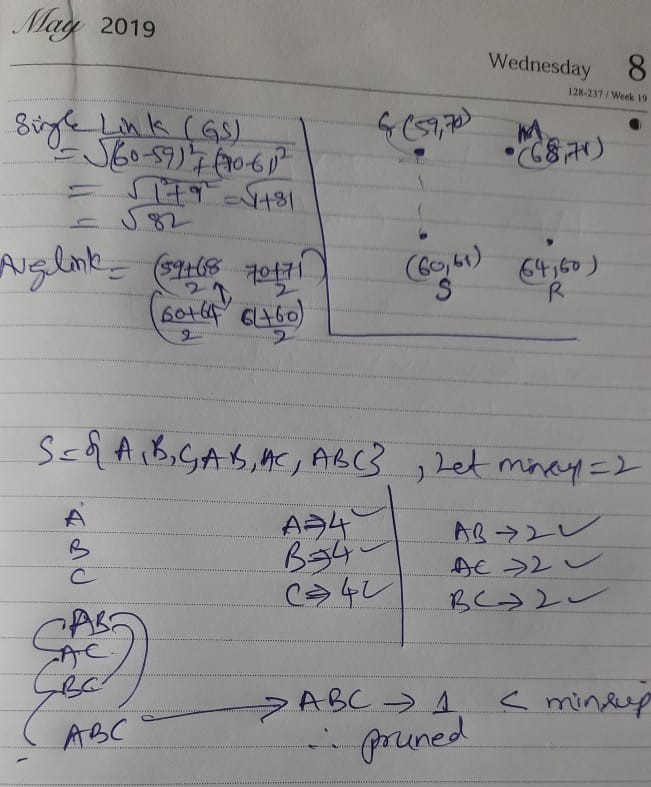 May 2019
Wednesday 8
128-237 / Week 19
Single Link (GS)
= √(60-59)² + (70-61)²
= √1²+9² = √1+81
= √82
Avg link = (59+68/2 70+71/2)
(60+64/2 61+60/2)
G(59,70)
M
(68,71)
(60,61)
S
(64,60)
R
S = { A, B, C, AB, AC, ABC} , Let minsup = 2
A
B
C
AB
AC
BC
ABC
A ⇒ 4 ✓
B ⇒ 4 ✓
C ⇒ 4 ✓
AB → 2 ✓
AC → 2 ✓
BC → 2 ✓
→ ABC → 1 < minsup
∴ pruned